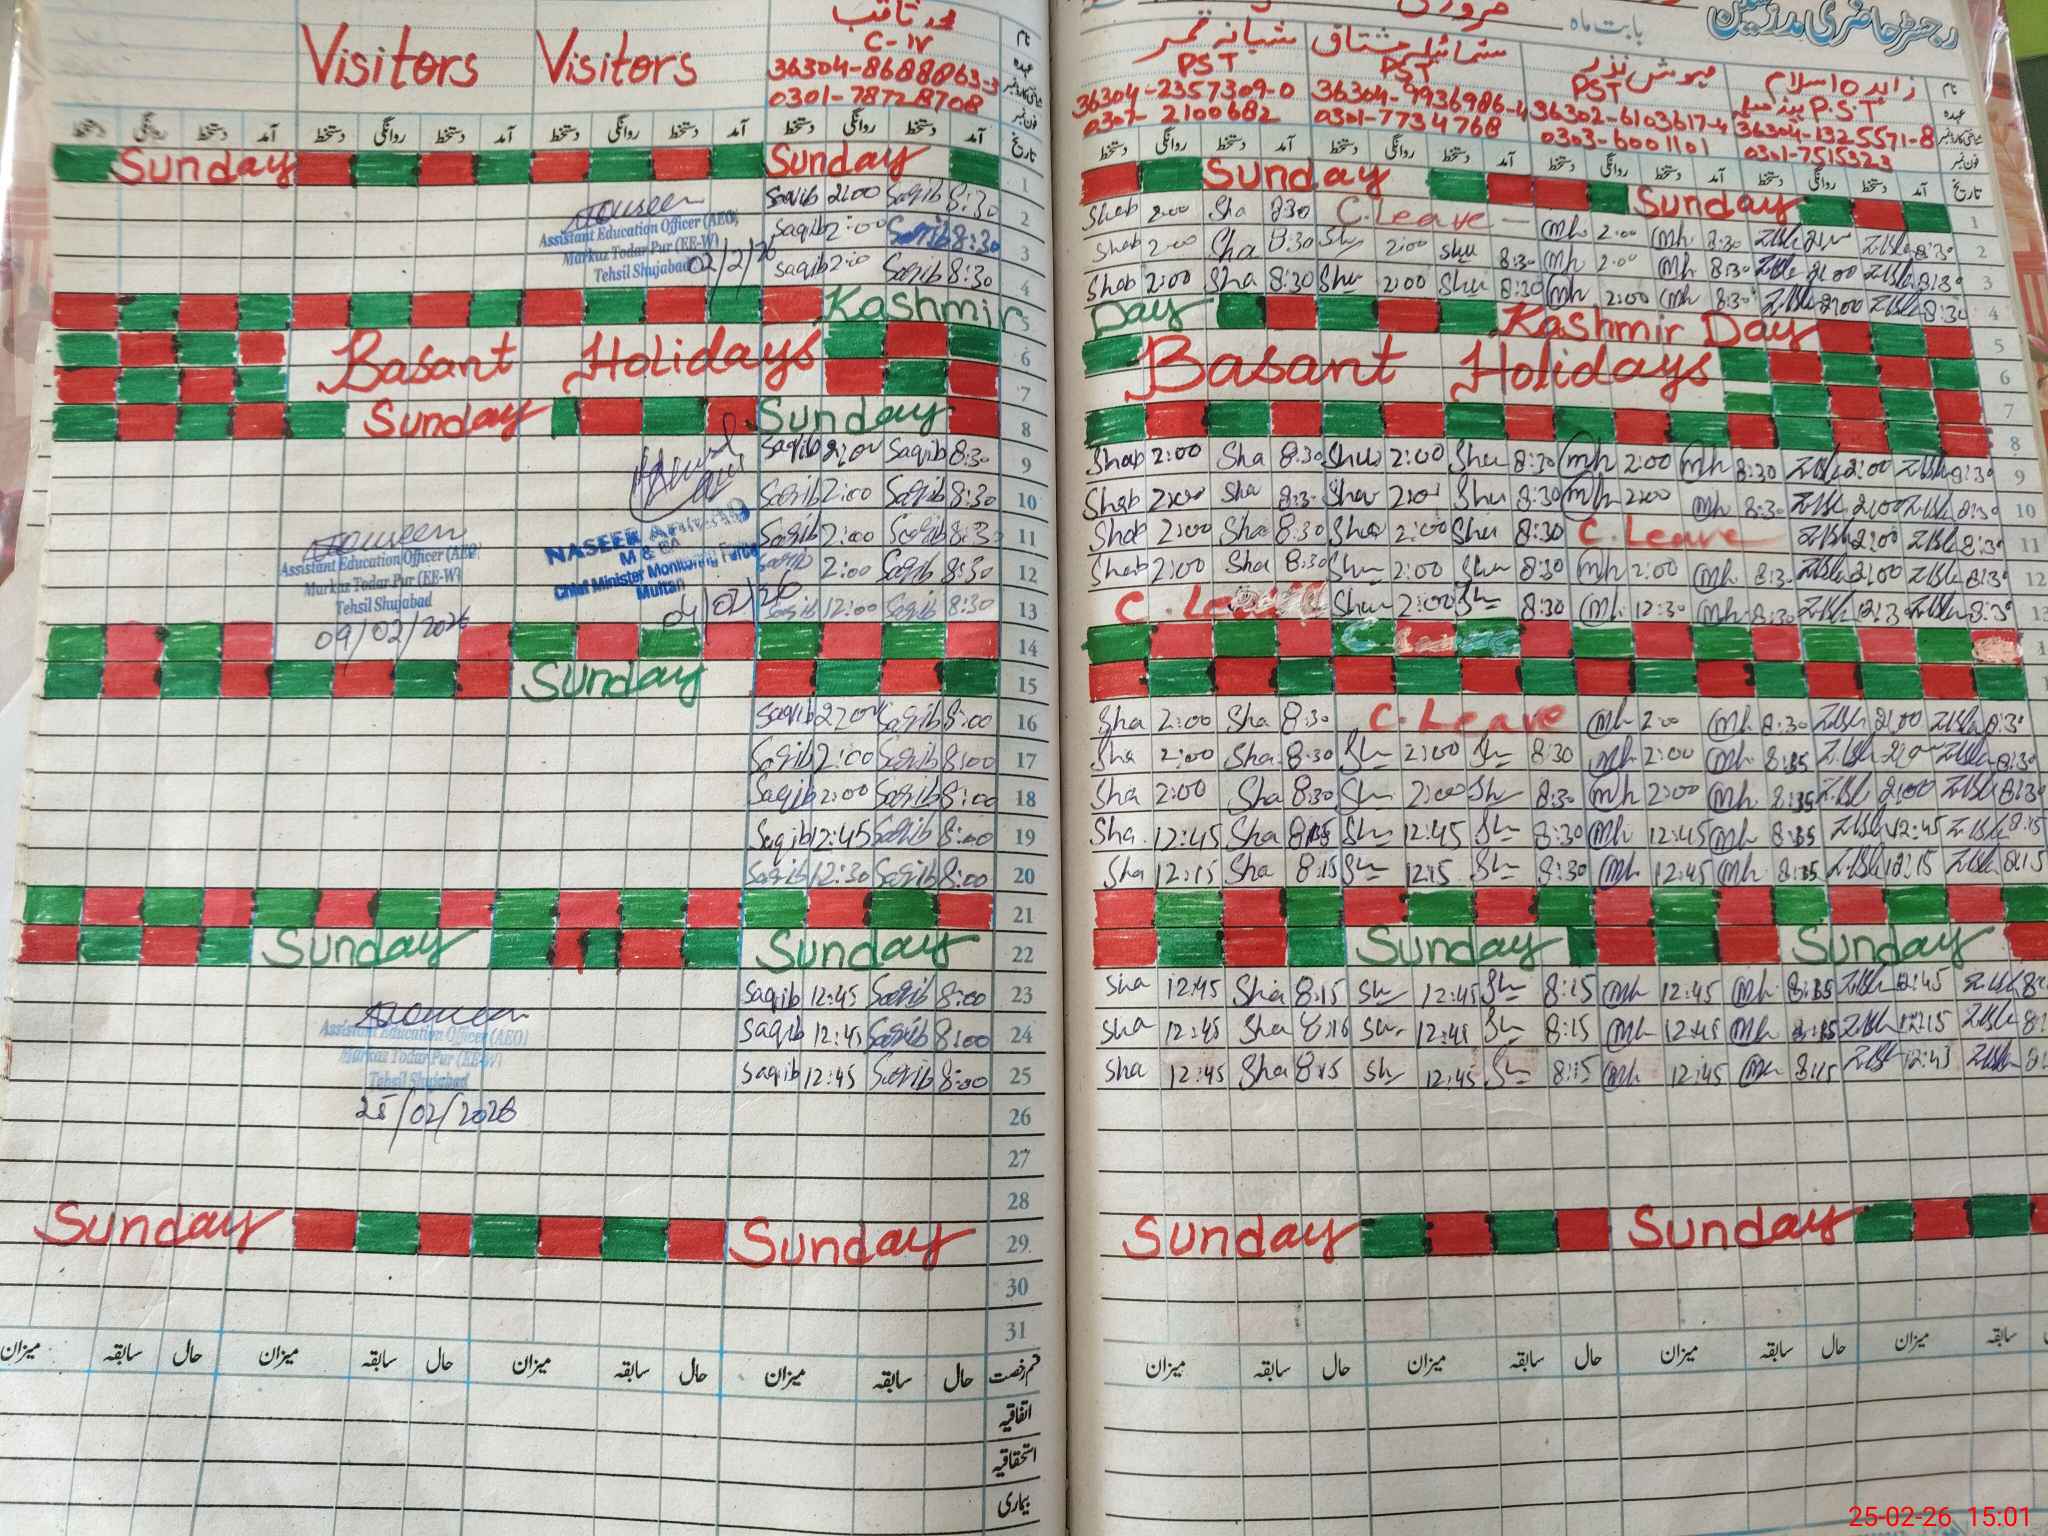 Visitors Visitors
C-IV
36304-8688863-3
0301-78728708
نام
عہدہ
دستخط روانگی دستخط آمد دستخط روانگی دستخط آمد دستخط روانگی دستخط آمد تاریخ
Sunday Sunday 1
Saqib 2:00 Saqib 8:30 2
Assistant Education Officer (AEO)
Markaz Todar Pur (EE-W)
Tehsil Shujabad
02/2/26
Saqib 2:00 Saqib 8:30 3
Saqib 2:00 Saqib 8:30 4
Kashmir 5
Basant Holidays 6
7
Sunday Sunday 8
Saqib 2:00 Saqib 8:30 9
Saqib 2:00 Saqib 8:30 10
Saqib 2:00 Saqib 8:30 11
Saqib 2:00 Saqib 8:30 12
Saqib 12:00 Saqib 8:30 13
Assistant Education Officer (AEO)
Markaz Todar Pur (EE-W)
Tehsil Shujabad
09/02/2026
M & EA
Chief Minister Monitoring Force
Multan
09/02/26
14
Sunday 15
Saqib 2:00 Saqib 8:00 16
Saqib 2:00 Saqib 8:00 17
Saqib 2:00 Saqib 8:00 18
Saqib 12:45 Saqib 8:00 19
Saqib 12:30 Saqib 8:00 20
21
Sunday Sunday 22
Saqib 12:45 Saqib 8:00 23
Saqib 12:45 Saqib 8:00 24
Saqib 12:45 Saqib 8:00 25
Assistant Education Officer (AEO)
Markaz Todar Pur (EE-W)
Tehsil Shujabad
25/02/2026
26
27
28
Sunday Sunday 29
30
31
میزان سابقہ حال میزان سابقہ حال میزان سابقہ حال میزان سابقہ حال قسم رخصت
اتفاقیہ
استحقاقیہ
بیماری
رجسٹر حاضری مدرسین
بابت ماہ فروری
شبانہ قمر شمائلہ مشتاق مہوش نذر زاہدہ اسلام نام
PST PST PST P.S.T عہدہ
36304-2357309-0 36304-9936986-4 36302-6103617-4 36304-1325571-8
0307-2100682 0301-7734768 0303-6001101 0301-7515323
دستخط روانگی دستخط آمد دستخط روانگی دستخط آمد دستخط روانگی دستخط آمد دستخط روانگی دستخط آمد تاریخ
Sunday Sunday 1
Shab 2:00 Sha 8:30 C.Leave Mh 2:00 Mh 8:30 8:30 2
Shab 2:00 Sha 8:30 Shu 2:00 Shu 8:30 Mh 2:00 Mh 8:30 2:00 8:30 3
Shab 2:00 Sha 8:30 Shu 2:00 Shu 8:30 Mh 2:00 Mh 8:30 2:00 8:30 4
Day Kashmir Day 5
Basant Holidays 6
7
8
Shab 2:00 Sha 8:30 Shu 2:00 Shu 8:30 Mh 2:00 Mh 8:30 2:00 8:30 9
Shab 2:00 Sha 8:30 Shu 2:00 Shu 8:30 Mh 2:00 Mh 8:30 2:00 8:30 10
Shab 2:00 Sha 8:30 Shu 2:00 Shu 8:30 C.Leave 2:00 8:30 11
Shab 2:00 Sha 8:30 Shu 2:00 Shu 8:30 Mh 2:00 Mh 8:30 2:00 8:30 12
C.Leave Shu 2:00 Shu 8:30 Mh 12:30 Mh 8:30 12:3 8:30 13
C Leave
Sha 2:00 Sha 8:30 C.Leave Mh 2:00 Mh 8:30 2:00 8:30
Sha 2:00 Sha 8:30 Sh 2:00 Sh 8:30 Mh 2:00 Mh 8:35 8:30
Sha 2:00 Sha 8:30 Sh 2:00 Sh 8:30 Mh 2:00 Mh 8:35 2:00 8:30
Sha. 12:45 Sha 8:15 Sh 12:45 Sh 8:30 Mh 12:45 Mh 12:45 8:15
Sha 12:15 Sha 8:15 Sh 12:15 Sh 8:30 Mh 12:45 Mh 12:15 8:15
Sunday Sunday
Sha 12:45 Sha 8:15 Sh 12:45 Sh 8:15 Mh 12:45 Mh 12:45
Sha 12:45 Sha 8:16 Sh 12:45 Sh 8:15 Mh 12:45 Mh 12:15
Sha 12:45 Sha 8:15 Sh 12:45 Sh 8:15 Mh 12:45 Mh 8:15 12:43
Sunday Sunday
میزان سابقہ حال میزان سابقہ حال میزان سابقہ حال میزان سابقہ
25-02-26 15:01